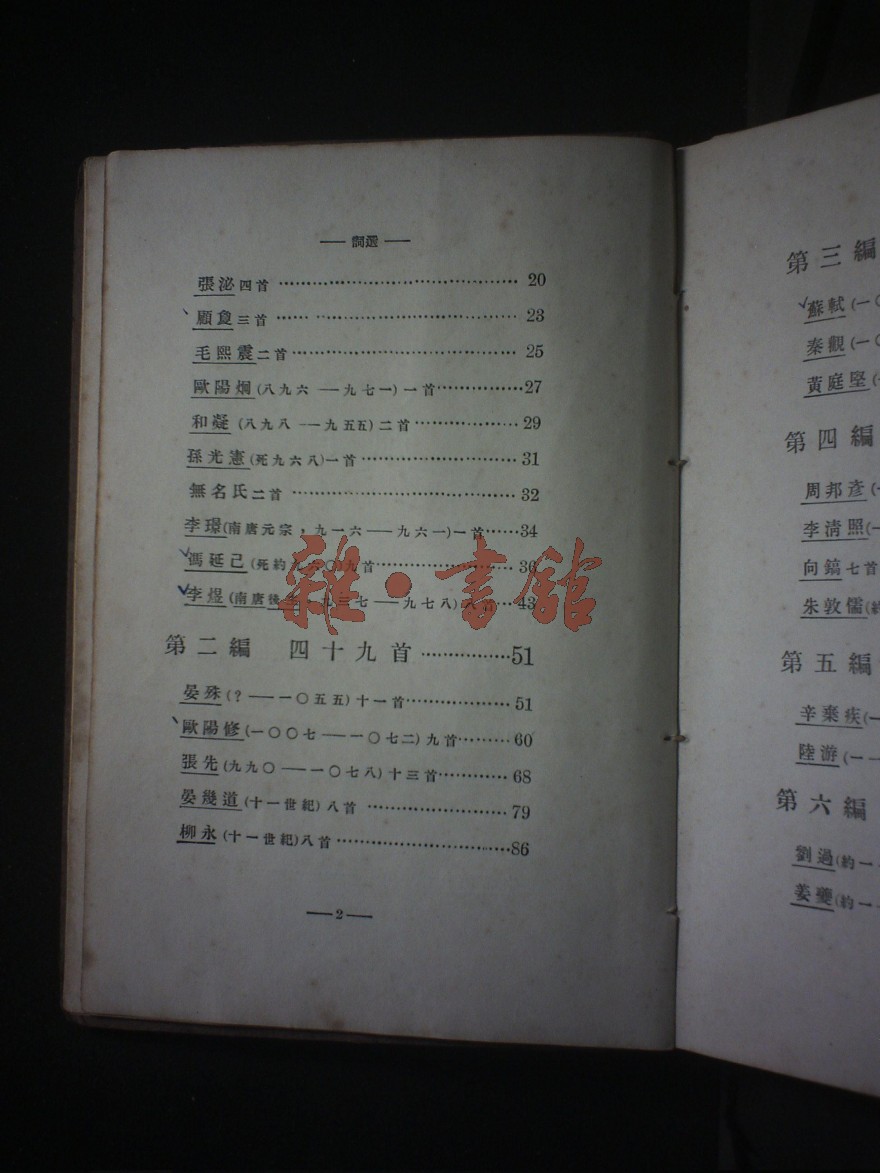 — 詞選 —
張泌四首 …… 20
顧敻三首 …… 23
毛熙震二首 …… 25
歐陽炯(八九六—九七一)一首 …… 27
和凝(八九八—九五五)二首 …… 29
孫光憲(死九六八)一首 …… 31
無名氏二首 …… 32
李璟(南唐元宗，九一六—九六一)一首 …… 34
馮延己(死約九六〇)九首 …… 36
李煜(南唐後主，九三七—九七八) …… 43
第二編 四十九首 …… 51
晏殊(？—一〇五五)十一首 …… 51
歐陽修(一〇〇七—一〇七二)九首 …… 60
張先(九九〇—一〇七八)十三首 …… 68
晏幾道(十一世紀)八首 …… 79
柳永(十一世紀)八首 …… 86
—2—
第三編
蘇軾(一〇
秦觀(一〇
黃庭堅(一
第四編
周邦彥(一
李清照(一
向鎬七首
朱敦儒(約
第五編
辛棄疾(一
陸游(一一
第六編
劉過(約一
姜夔(約一一
雜·書館